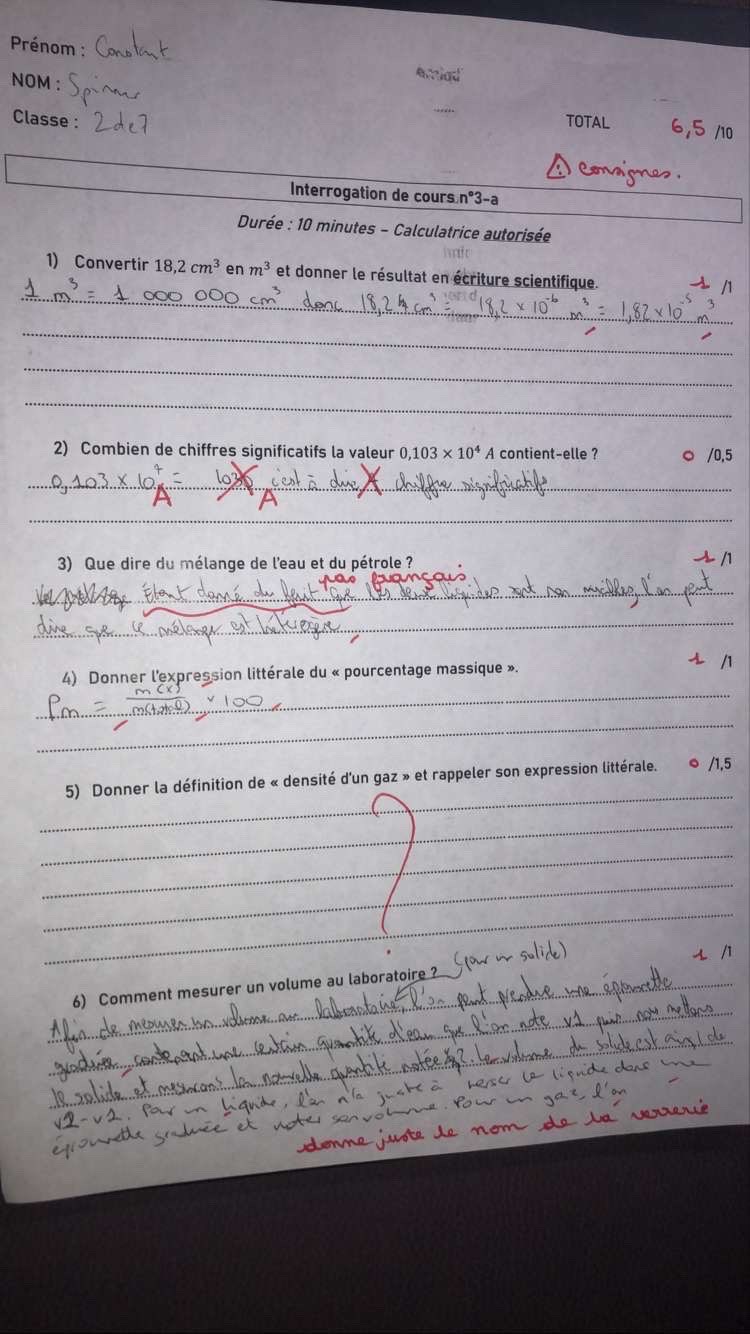 Prénom : Constant
NOM : Spinner
Classe : 2de7
TOTAL 6,5 /10
⚠ consignes.
Interrogation de cours n°3-a
Durée : 10 minutes – Calculatrice autorisée
1) Convertir 18,2 cm³ en m³ et donner le résultat en écriture scientifique. 1 /1
1 m³ = 1 000 000 cm³ donc 18,2 cm³ = 18,2 × 10⁻⁶ m³ = 1,82 × 10⁻⁵ m³
2) Combien de chiffres significatifs la valeur 0,103 × 10⁴ A contient-elle ? 0 /0,5
0,103 × 10⁴ = 1030 c'est à dire 4 chiffre significatifs
A A
3) Que dire du mélange de l'eau et du pétrole ? 1 /1
pas français
Étant donné du fait que les deux liquides sont non miscibles, l'on peut
dire que ce mélange est hétérogène
4) Donner l'expression littérale du « pourcentage massique ». 1 /1
Pm = m(x)/m(total) × 100
5) Donner la définition de « densité d'un gaz » et rappeler son expression littérale. 0 /1,5
?
6) Comment mesurer un volume au laboratoire ? (pour un solide) 1 /1
Afin de mesurer un volume au laboratoire, l'on peut prendre une éprouvette
graduée contenant une certain quantité d'eau que l'on note v1 puis nous mettons
le solide et mesurons la nouvelle quantité notée v2. Le volume du solide est ainsi de
v2-v1. Pour un liquide, l'on n'a juste à verser le liquide dans une
éprouvette graduée et noter son volume. Pour un gaz, l'on
donne juste le nom de la verrerie